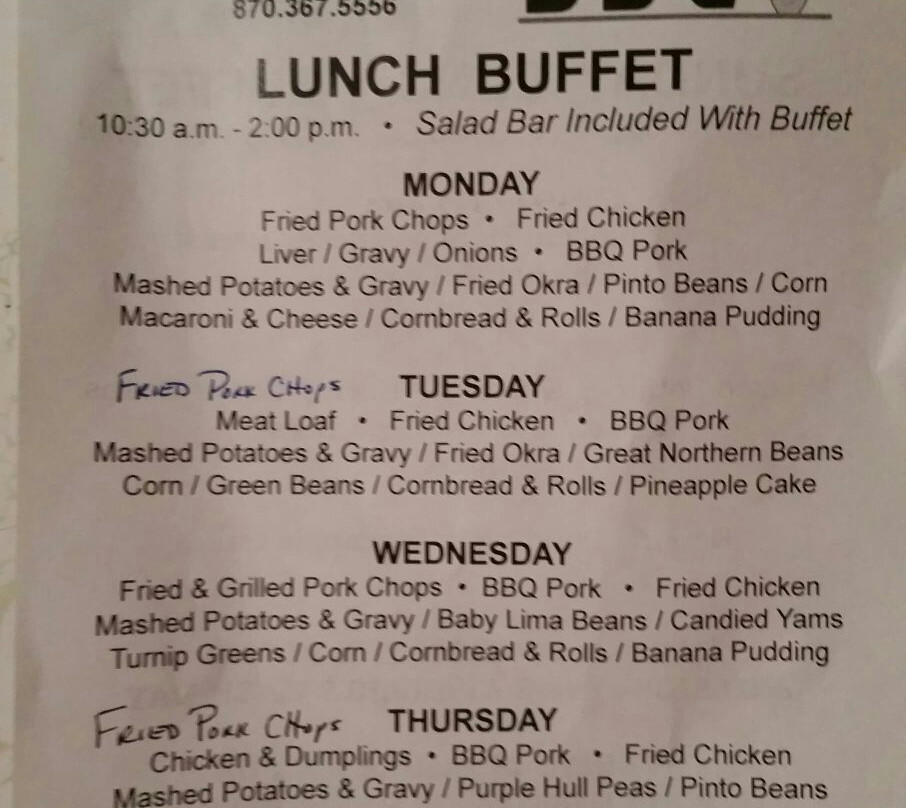 870.367.5556
LUNCH BUFFET
10:30 a.m. - 2:00 p.m. • Salad Bar Included With Buffet
MONDAY
Fried Pork Chops • Fried Chicken
Liver / Gravy / Onions • BBQ Pork
Mashed Potatoes & Gravy / Fried Okra / Pinto Beans / Corn
Macaroni & Cheese / Cornbread & Rolls / Banana Pudding
FRIED PORK CHOPS TUESDAY
Meat Loaf • Fried Chicken • BBQ Pork
Mashed Potatoes & Gravy / Fried Okra / Great Northern Beans
Corn / Green Beans / Cornbread & Rolls / Pineapple Cake
WEDNESDAY
Fried & Grilled Pork Chops • BBQ Pork • Fried Chicken
Mashed Potatoes & Gravy / Baby Lima Beans / Candied Yams
Turnip Greens / Corn / Cornbread & Rolls / Banana Pudding
FRIED PORK CHOPS THURSDAY
Chicken & Dumplings • BBQ Pork • Fried Chicken
Mashed Potatoes & Gravy / Purple Hull Peas / Pinto Beans